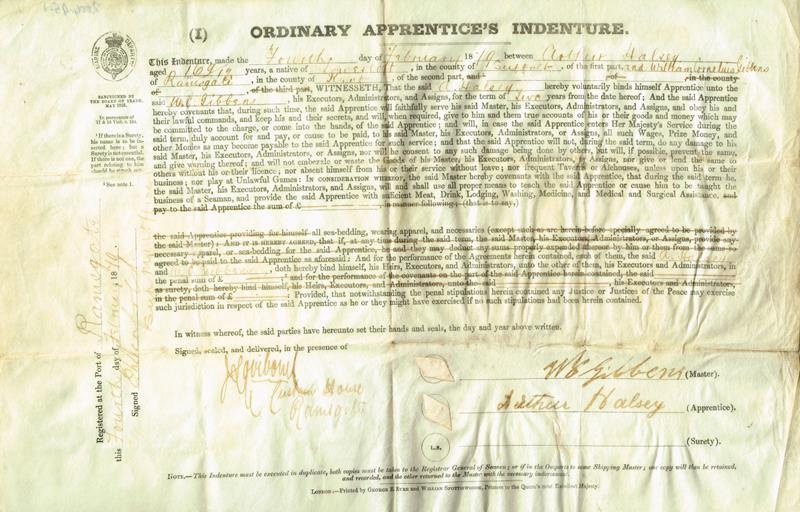 (I) ORDINARY APPRENTICE'S INDENTURE.
SANCTIONED BY
THE BOARD OF TRADE,
In pursuance of
17 & 18 Vict. c. 104.
* If there is a Surety,
his name is to be inserted here; but a
Surety is not essential.
If there is not one, the
part relating to him
should be struck out.
† See note 1.
This Indenture, made the Fourth day of February 1879 between Arthur Halsey
aged 16 9/12 years, a native of, in the county of Sussex, of the first part, and William Cornelius Gibbens
of Ramsgate, in the county of Kent, of the second part, and of in the county
of, of the third part, WITNESSETH, That the said A Halsey hereby voluntarily binds himself Apprentice unto the
said W C Gibbens, his Executors, Administrators, and Assigns, for the term of years from the date hereof; And the said Apprentice
hereby covenants that, during such time, the said Apprentice will faithfully serve his said Master, his Executors, Administrators, and Assigns, and obey his and
their lawful commands, and keep his and their secrets, and will, when required, give to him and them true accounts of his or their goods and money which may
be committed to the charge, or come into the hands, of the said Apprentice; and will, in case the said Apprentice enters Her Majesty's Service during the
said term, duly account for and pay, or cause to be paid, to his said Master, his Executors, Administrators, or Assigns, all such Wages, Prize Money, and
other Monies as may become payable to the said Apprentice for such service; and that the said Apprentice will not, during the said term, do any damage to his
said Master, his Executors, Administrators, or Assigns, nor will he consent to any such damage being done by others, but will, if possible, prevent the same,
and give warning thereof; and will not embezzle or waste the Goods of his Master, his Executors, Administrators, or Assigns, nor give or lend the same to
others without his or their licence; nor absent himself from his or their service without leave; nor frequent Taverns or Alehouses, unless upon his or their
business; nor play at Unlawful Games: IN CONSIDERATION WHEREOF, the said Master hereby covenants with the said Apprentice, that during the said term he,
the said Master, his Executors, Administrators, and Assigns, will and shall use all proper means to teach the said Apprentice or cause him to be taught the
business of a Seaman, and provide the said Apprentice with sufficient Meat, Drink, Lodging, Washing, Medicine, and Medical and Surgical Assistance, and
pay to the said Apprentice the sum of £ in manner following; (that is to say,)
the said Apprentice providing for himself all sea-bedding, wearing apparel, and necessaries (except such as are herein-before specially agreed to be provided by
the said Master): AND IT IS HEREBY AGREED, that if, at any time during the said term, the said Master, his Executors, Administrators, or Assigns, provide any
necessary apparel, or sea-bedding for the said Apprentice, he and they may deduct any sums properly expended thereon by him or them from any sum
agreed to be paid to the said Apprentice as aforesaid: And for the performance of the Agreements herein contained, each of them, the said Arthur Halsey
and, doth hereby bind himself, his Heirs, Executors, and Administrators, unto the other of them, his Executors and Administrators, in
the penal sum of £; and for the performance of the covenants on the part of the said Apprentice herein contained, the said
as surety, doth hereby bind himself, his Heirs, Executors, and Administrators, unto the said, his Executors and Administrators,
in the penal sum of £: Provided, that notwithstanding the penal stipulations herein contained any Justice or Justices of the Peace may exercise
such jurisdiction in respect of the said Apprentice as he or they might have exercised if no such stipulations had been herein contained.
In witness whereof, the said parties have hereunto set their hands and seals, the day and year above written.
Signed, sealed, and delivered, in the presence of
Custom House
Ramsgate
W C Gibbens (Master).
Arthur Halsey (Apprentice).
L.S. (Surety).
Registered at the Port of Ramsgate
this Fourth day of February 1879
Signed
NOTE.—This Indenture must be executed in duplicate, both copies must be taken to the Registrar General of Seamen; or if in the Outports to some Shipping Master; one copy will then be retained,
and recorded, and the other returned to the Master with the necessary indorsement.
LONDON:—Printed by GEORGE E. EYRE and WILLIAM SPOTTISWOODE, Printers to the Queen's most Excellent Majesty.